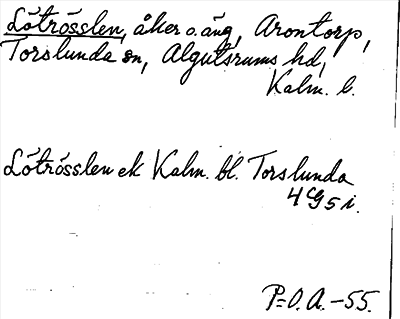 Lötrösslen, åker o. äng, Arontorp,
Torslunda sn, Algutsrums hd,
Kalm. l.
Lötrösslen ek Kalm. bl. Torslunda
4 g 5 i.
P=O.A.-55.